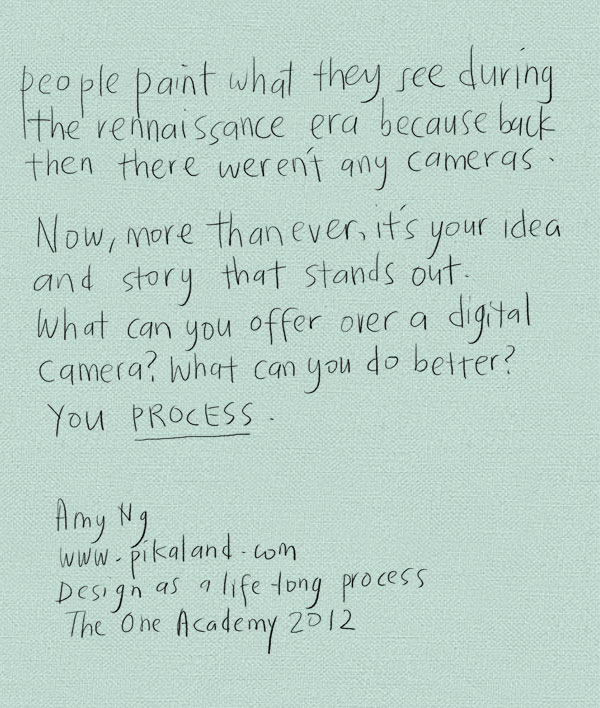 people paint what they see during
the rennaissance era because back
then there weren't any cameras.
Now, more than ever, it's your idea
and story that stands out.
What can you offer over a digital
camera? What can you do better?
You PROCESS.
Amy Ng
www.pikaland.com
Design as a life-long process
The One Academy 2012